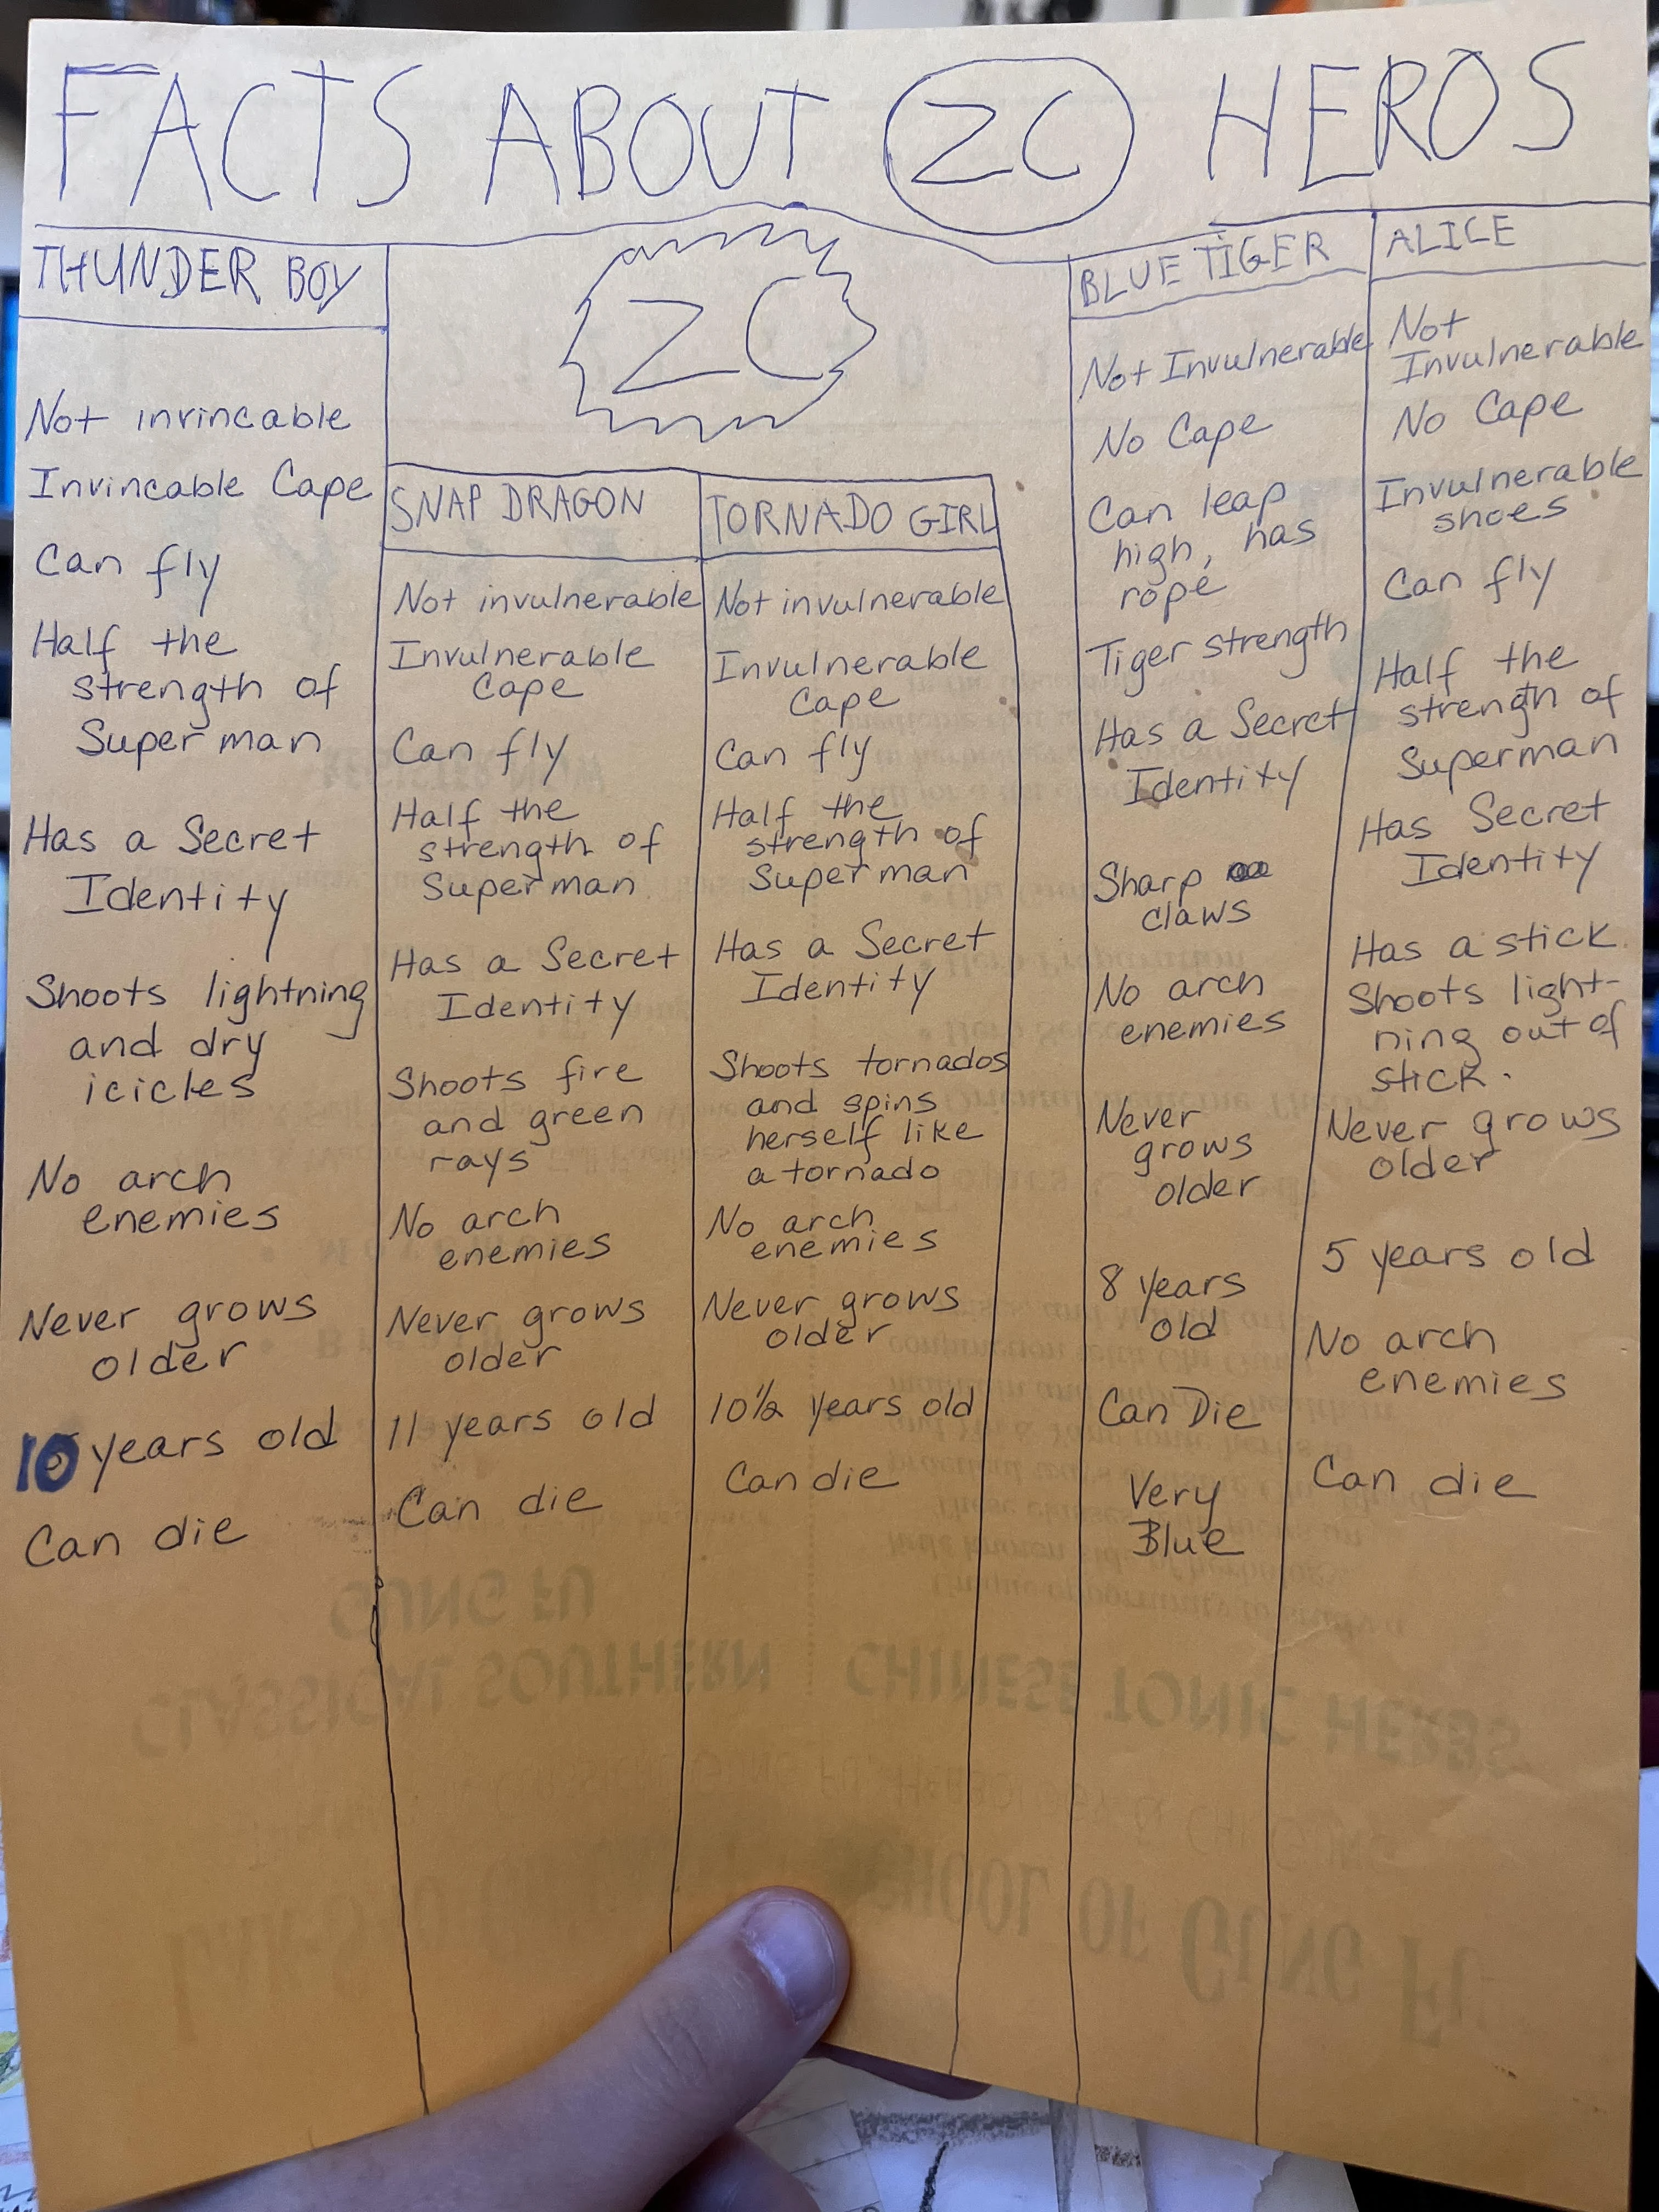 FACTS ABOUT ZC HEROS
THUNDER BOY
Not invincable
Invincable Cape
Can fly
Half the
strength of
Superman
Has a Secret
Identity
Shoots lightning
and dry
icicles
No arch
enemies
Never grows
older
10 years old
Can die
ZC
SNAP DRAGON
Not invulnerable
Invulnerable
Cape
Can fly
Half the
strength of
Superman
Has a Secret
Identity
Shoots fire
and green
rays
No arch
enemies
Never grows
older
11 years old
Can die
TORNADO GIRL
Not invulnerable
Invulnerable
Cape
Can fly
Half the
strength of
Superman
Has a Secret
Identity
Shoots tornados
and spins
herself like
a tornado
No arch
enemies
Never grows
older
10½ years old
Can die
BLUE TIGER
Not Invulnerable
No Cape
Can leap
high, has
rope
Tiger strength
Has a Secret
Identity
Sharp
claws
No arch
enemies
Never
grows
older
8 years
old
Can Die
Very
Blue
ALICE
Not
Invulnerable
No Cape
Invulnerable
shoes
Can fly
Half the
strength of
Superman
Has Secret
Identity
Has a stick
Shoots light-
ning out of
stick.
Never grows
older
5 years old
No arch
enemies
Can die
GUNG FU
CLASSICAL SOUTHERN
CHINESE TONIC HERBS
SCHOOL OF GUNG FU